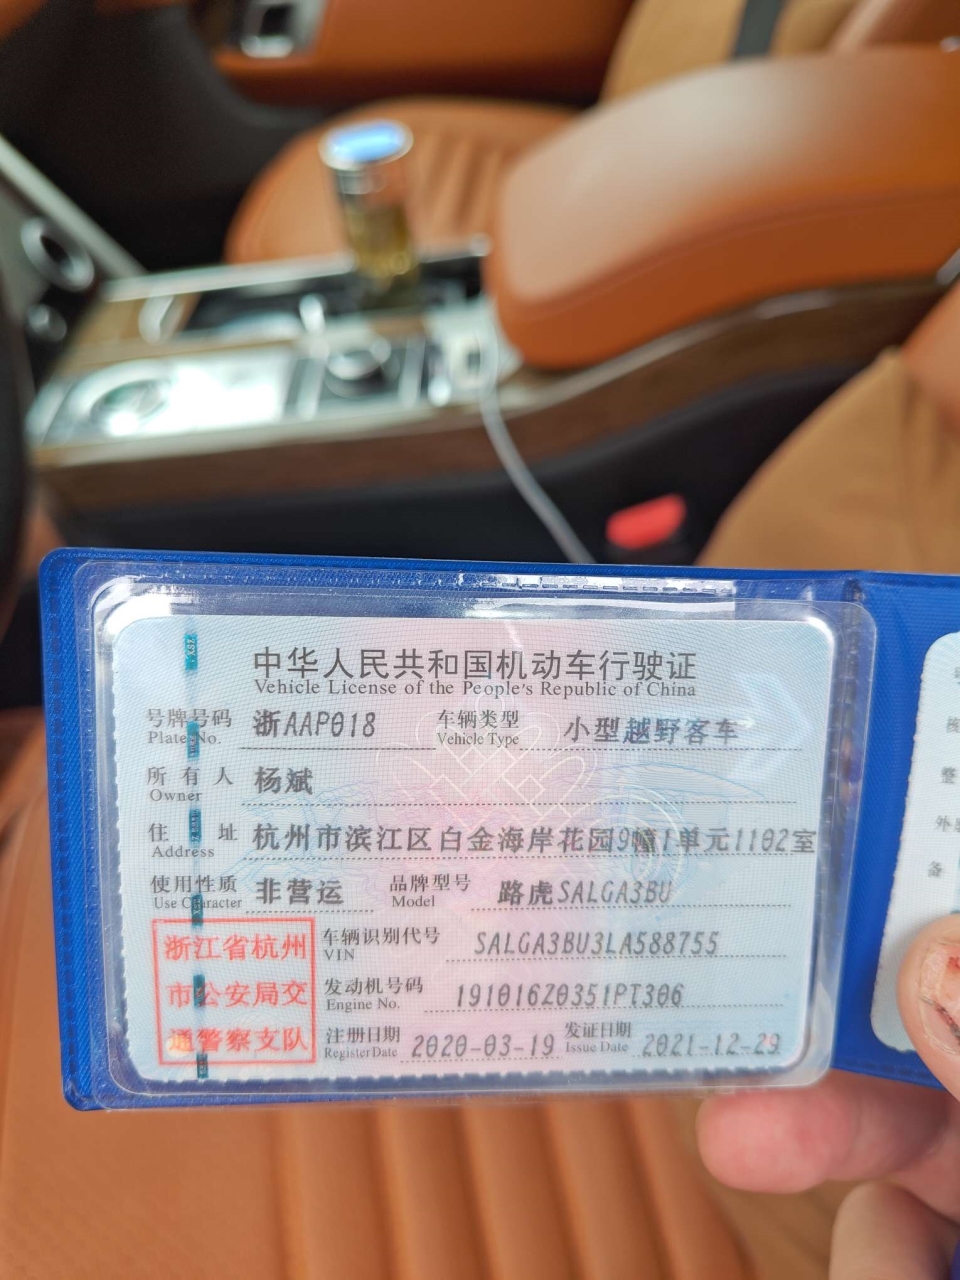 中华人民共和国机动车行驶证
Vehicle License of the People's Republic of China
号牌号码 浙AAP018 车辆类型 小型越野客车
Plate No. Vehicle Type
所有人 杨斌
Owner
住址 杭州市滨江区白金海岸花园9幢1单元1102室
Address
使用性质 非营运 品牌型号 路虎SALGA3BU
Use Character Model
浙江省杭州
市公安局交
通警察支队
车辆识别代号 SALGA3BU3LA588755
VIN
发动机号码 191016Z0351PT306
Engine No.
注册日期 2020-03-19 发证日期 2021-12-29
Register Date Issue Date
号
核
整
外
备